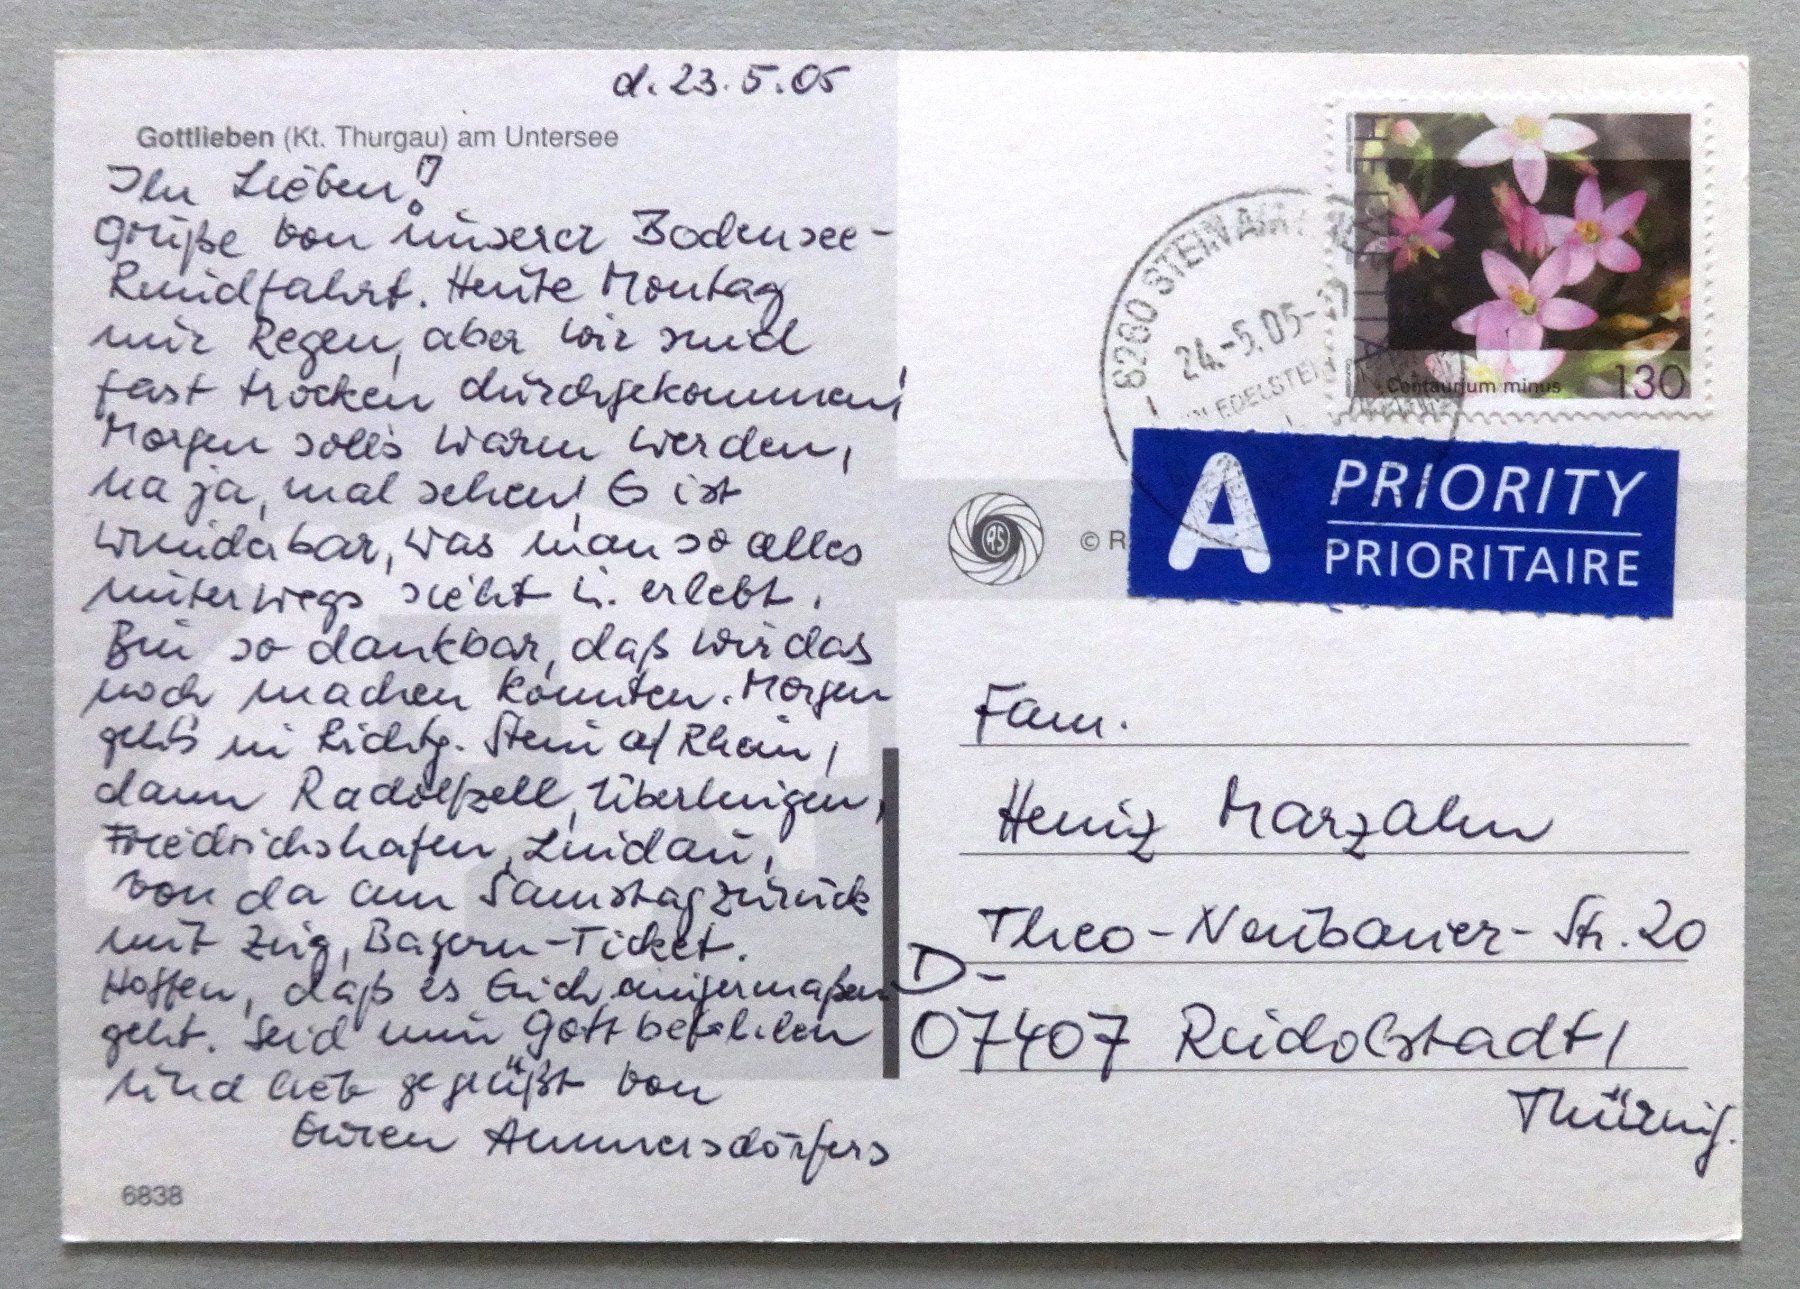 d. 23.5.05
Gottlieben (Kt. Thurgau) am Untersee
Ihr Lieben!
Grüße von unserer Bodensee-
Rundfahrt. Heute Montag
nur Regen, aber wir sind
fast trocken durchgekommen!
Morgen solls warm werden,
na ja, mal sehen! Es ist
wunderbar, was man so alles
unterwegs sieht u. erlebt.
Bin so dankbar, daß wir das
noch machen konnten. Morgen
gehts in Richtg. Stein a/Rhein,
dann Radolfzell, Überlingen,
Friedrichshafen, Lindau,
von da am Samstag zurück
mit Zug, Bayern-Ticket.
Hoffen, daß es Euch einigermaßen
geht. Seid nun Gott befohlen
und lieb gegrüßt von
Euren Ammersdörfers
6838
8260 STEIN AM RHEIN
24.-5.05-
EDELSTEIN
HELVETIA
Centaurium minus
130
A
PRIORITY
PRIORITAIRE
AS
© R
Fam.
Heinz Marzahn
Theo-Neubauer-Str. 20
D-
07407 Rudolstadt/
Thüring.